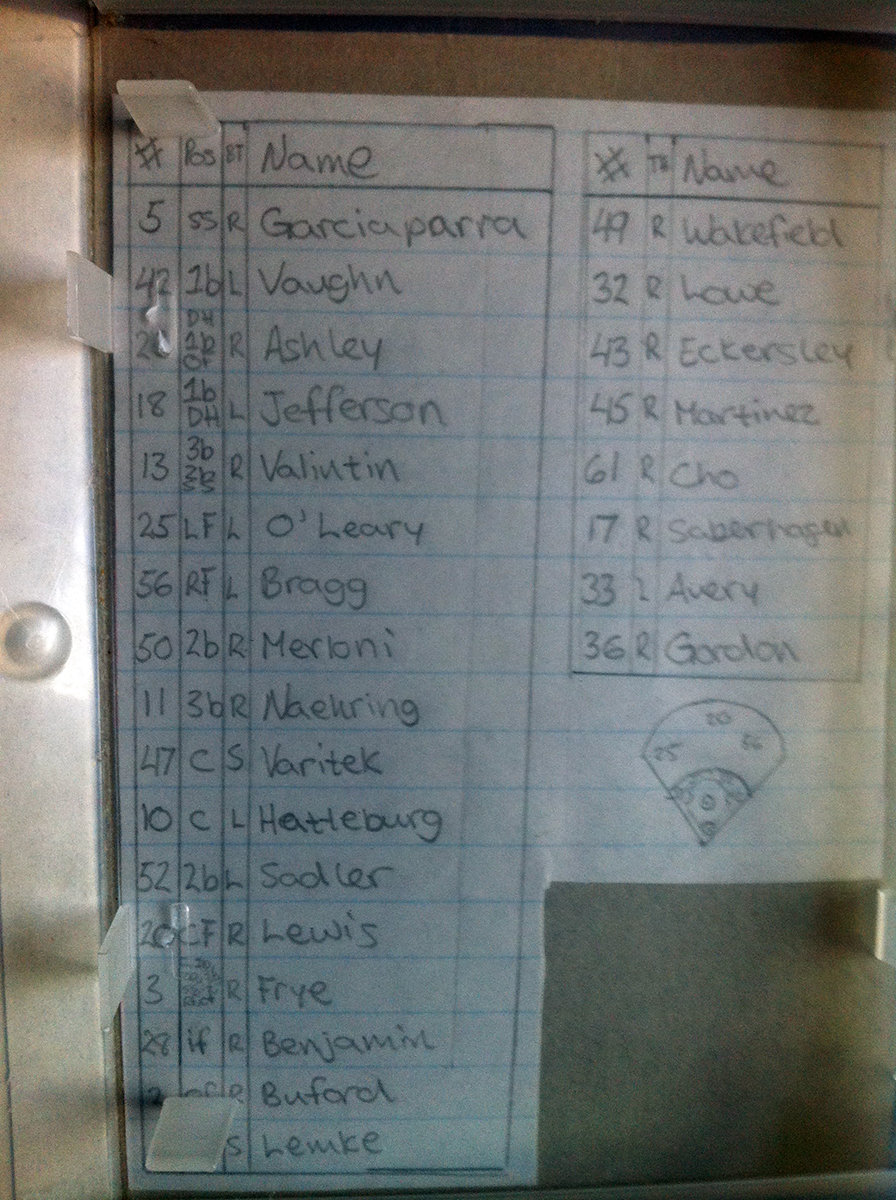 # Pos BT Name
5 SS R Garciaparra
42 1b L Vaughn
DH 1b OF R Ashley
18 1b DH L Jefferson
13 3b R Valintin
25 LF L O'Leary
56 RF L Bragg
50 2b R Merloni
11 3b R Naehring
47 C S Varitek
10 C L Hatteburg
52 2b L Sadler
20 CF R Lewis
3 R Frye
28 if R Benjamin
2 of R Buford
S Lemke
# Name
49 R Wakefield
32 R Lowe
43 R Eckersley
45 R Martinez
61 R Cho
17 R Saberhagen
33 L Avery
36 R Gordon
20
25 56